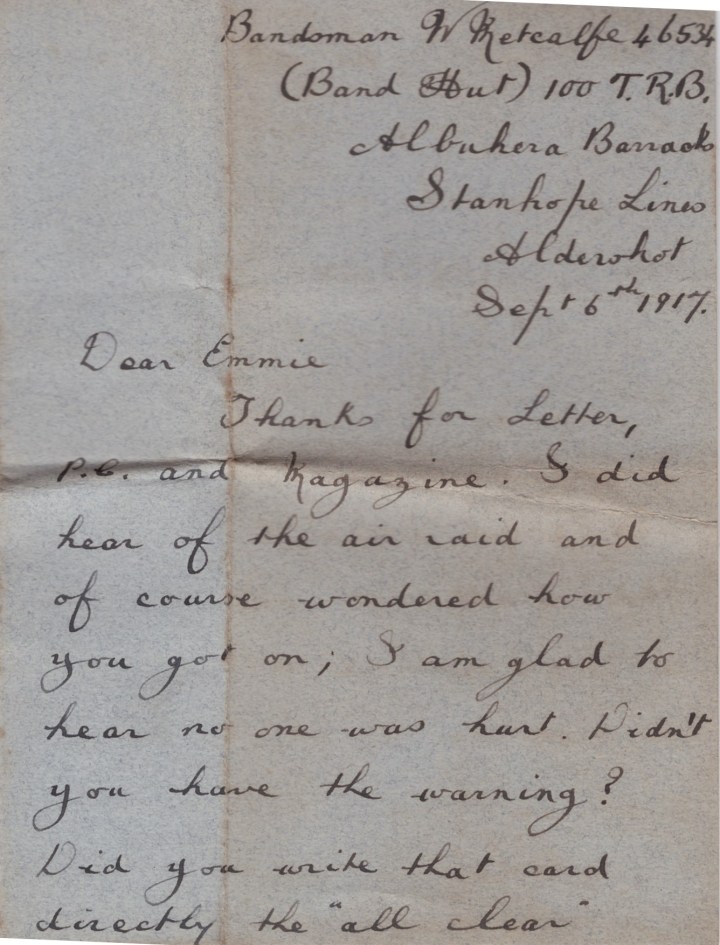 Bandsman W Metcalfe 46534
(Band Hut) 100 T.R.B.
Albuhera Barracks
Stanhope Lines
Aldershot
Sept 6th 1917.
Dear Emmie
Thanks for Letter,
P.C. and Magazine. I did
hear of the air raid and
of course wondered how
you got on; I am glad to
hear no one was hurt. Didn't
you have the warning?
Did you write that card
directly the "all clear"